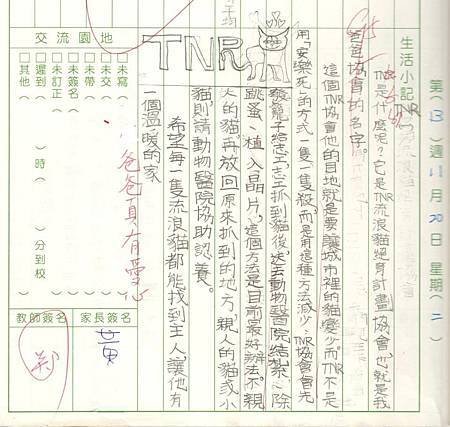 第(13)週11月20日 星期(二)
生活小記 TNR
TNR是什麼呢?它是TNR流浪貓絕身計劃協會也就是我
爸爸協會的名字。
這個TNR協會他的目地就是要讓城市裡的貓變少。而TNR不是
用「安樂死」的方式一隻一隻殺,而是用這種方法減少:TNR協會會先
發籠子給志工,志工抓到貓後,送去動物醫院結紮、除
跳蚤、植入晶片,這個方法是目前最好辦法。不親
人的貓,再放回原來抓到的地方,親人的貓或小
貓,則請動物醫院協助認養。
希望每一隻流浪貓都能找到主人,讓他有
一個溫暖的家
TNR
交流園地
□未寫
□未交
□未帶
□未簽名
□未訂正
□遲到( )時( )分到校
□其他
爸爸真有愛心
家長簽名
黃
教師簽名
鄭